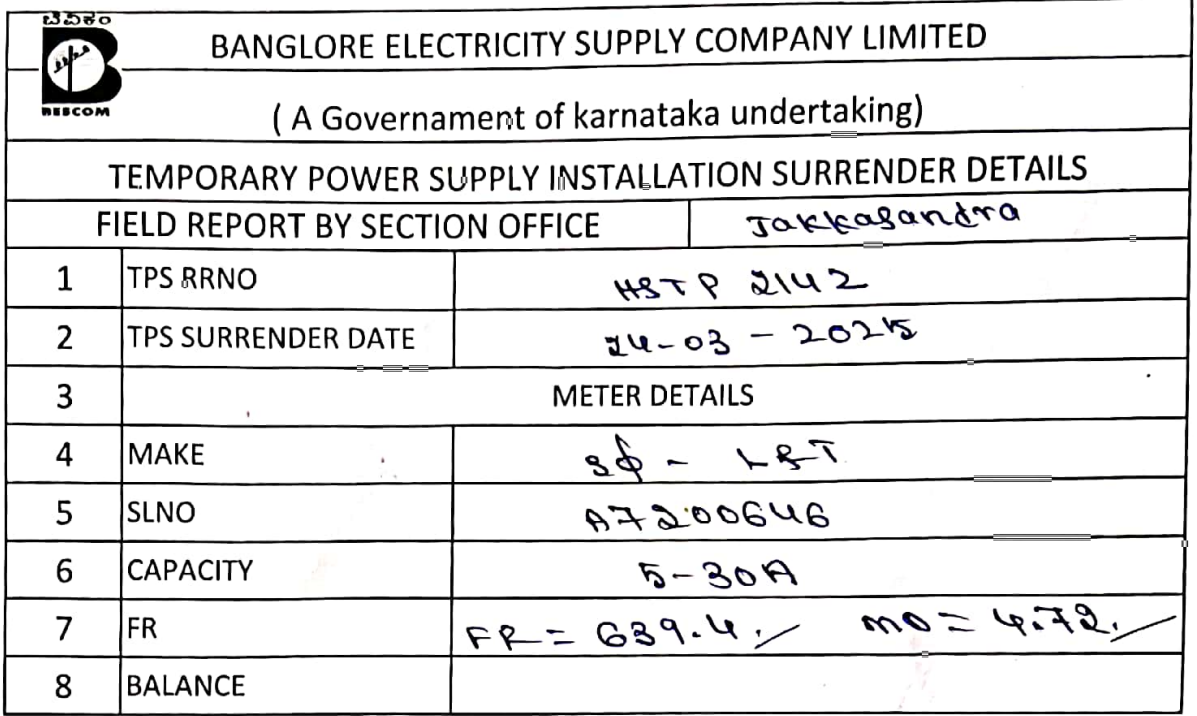 ಬೆವಿಕಂ
BESCOM
BANGLORE ELECTRICITY SUPPLY COMPANY LIMITED
( A Governament of karnataka undertaking)
TEMPORARY POWER SUPPLY INSTALLATION SURRENDER DETAILS
FIELD REPORT BY SECTION OFFICE Jakkasandra
1 TPS RRNO HSTP 2142
2 TPS SURRENDER DATE 24-03-2025
3 METER DETAILS
4 MAKE 3ϕ - L&T
5 SLNO A7200646
6 CAPACITY 5-30A
7 FR FR = 639.4 MD = 4.72
8 BALANCE